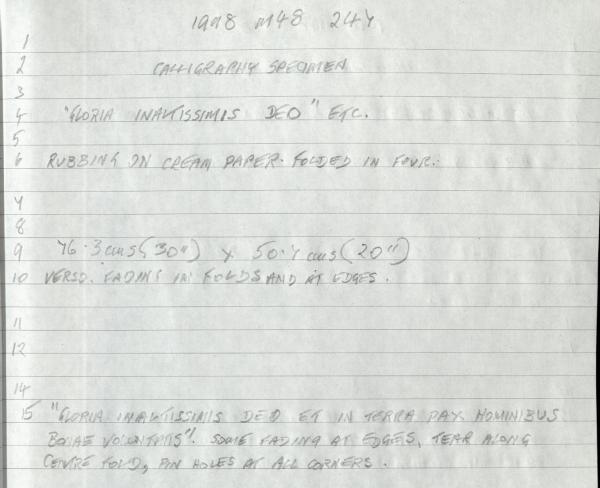 1998 M48 247
1
2 CALLIGRAPHY SPECIMEN
3
4 "GLORIA INALTISSIMIS DEO" ETC.
5
6 RUBBING ON CREAM PAPER. FOLDED IN FOUR.
7
8
9 76.3 cms (30") x 50.7 cms (20")
10 VERSO. FADING IN FOLDS AND AT EDGES.
11
12
14
15 "GLORIA INALTISSIMIS DEO ET IN TERRA PAX HOMINIBUS
BONAE VOLUNTATIS". SOME FADING AT EDGES, TEAR ALONG
CENTRE FOLD, PIN HOLES AT ALL CORNERS.